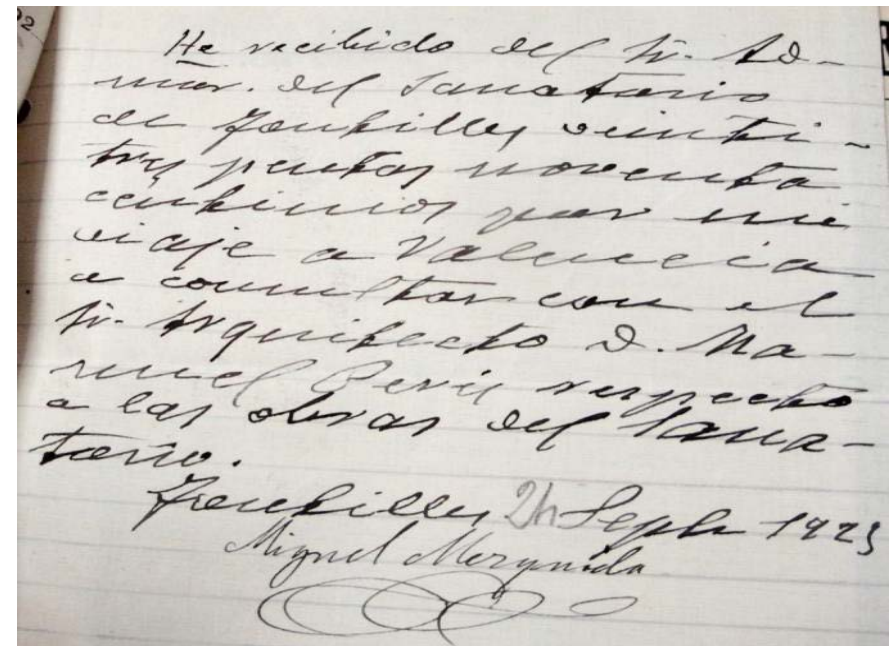 He recibido del Sr. Ad-
mor. del Sanatorio
de Fontilles veinti-
tres pesetas noventa
céntimos por mi
viaje a Valencia
a consultar con el
Sr. Arquitecto D. Ma-
nuel Peris respecto
a las obras del Sana-
torio.
Fontilles 24 Sepbre 1923
Miguel